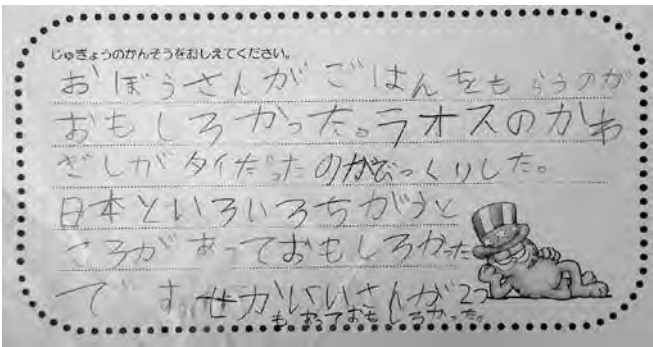 じゅぎょうのかんそうをおしえてください。
おぼうさんがごはんをもらうのが
おもしろかった。ラオスのかわ
ぎしがタイだったのがびっくりした。
日本といろいろちがうと
ころがあっておもしろかった
です。せかいいさんが2つ
もあっておもしろかった。